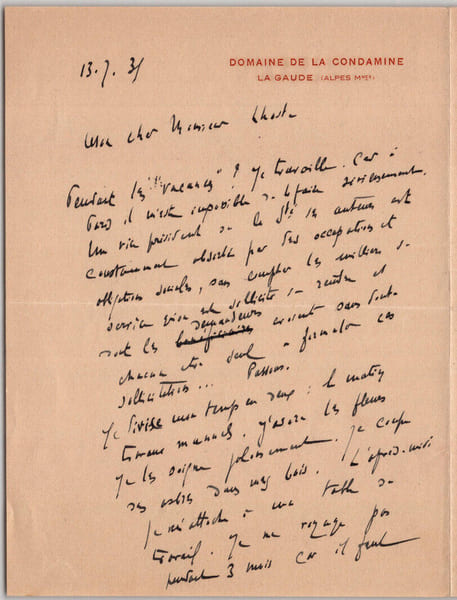 DOMAINE DE LA CONDAMINE
LA GAUDE (ALPES Mmes)
13.7.31
Mon cher Monsieur Lhoste
Pendant les "vacances"? Je travaille. Car à
Paris il m'est impossible de le faire sérieusement.
Un vice président de la Sté des auteurs est
constamment absorbé par des occupations et
obligations sociales, sans compter les milliers de
services qu'on est sollicité de rendre et
dont les demandeurs croient sans doute
chacun être seul à formuler ces
sollicitations... Passons.
Je divise mon temps en deux : le matin
travaux manuels. J'arrose les fleurs
Je les soigne jalousement. Je coupe
des arbres dans mes bois. L'après-midi
Je m'attache à ma table de
travail. Je ne voyage pas
pendant 3 mois car il faut